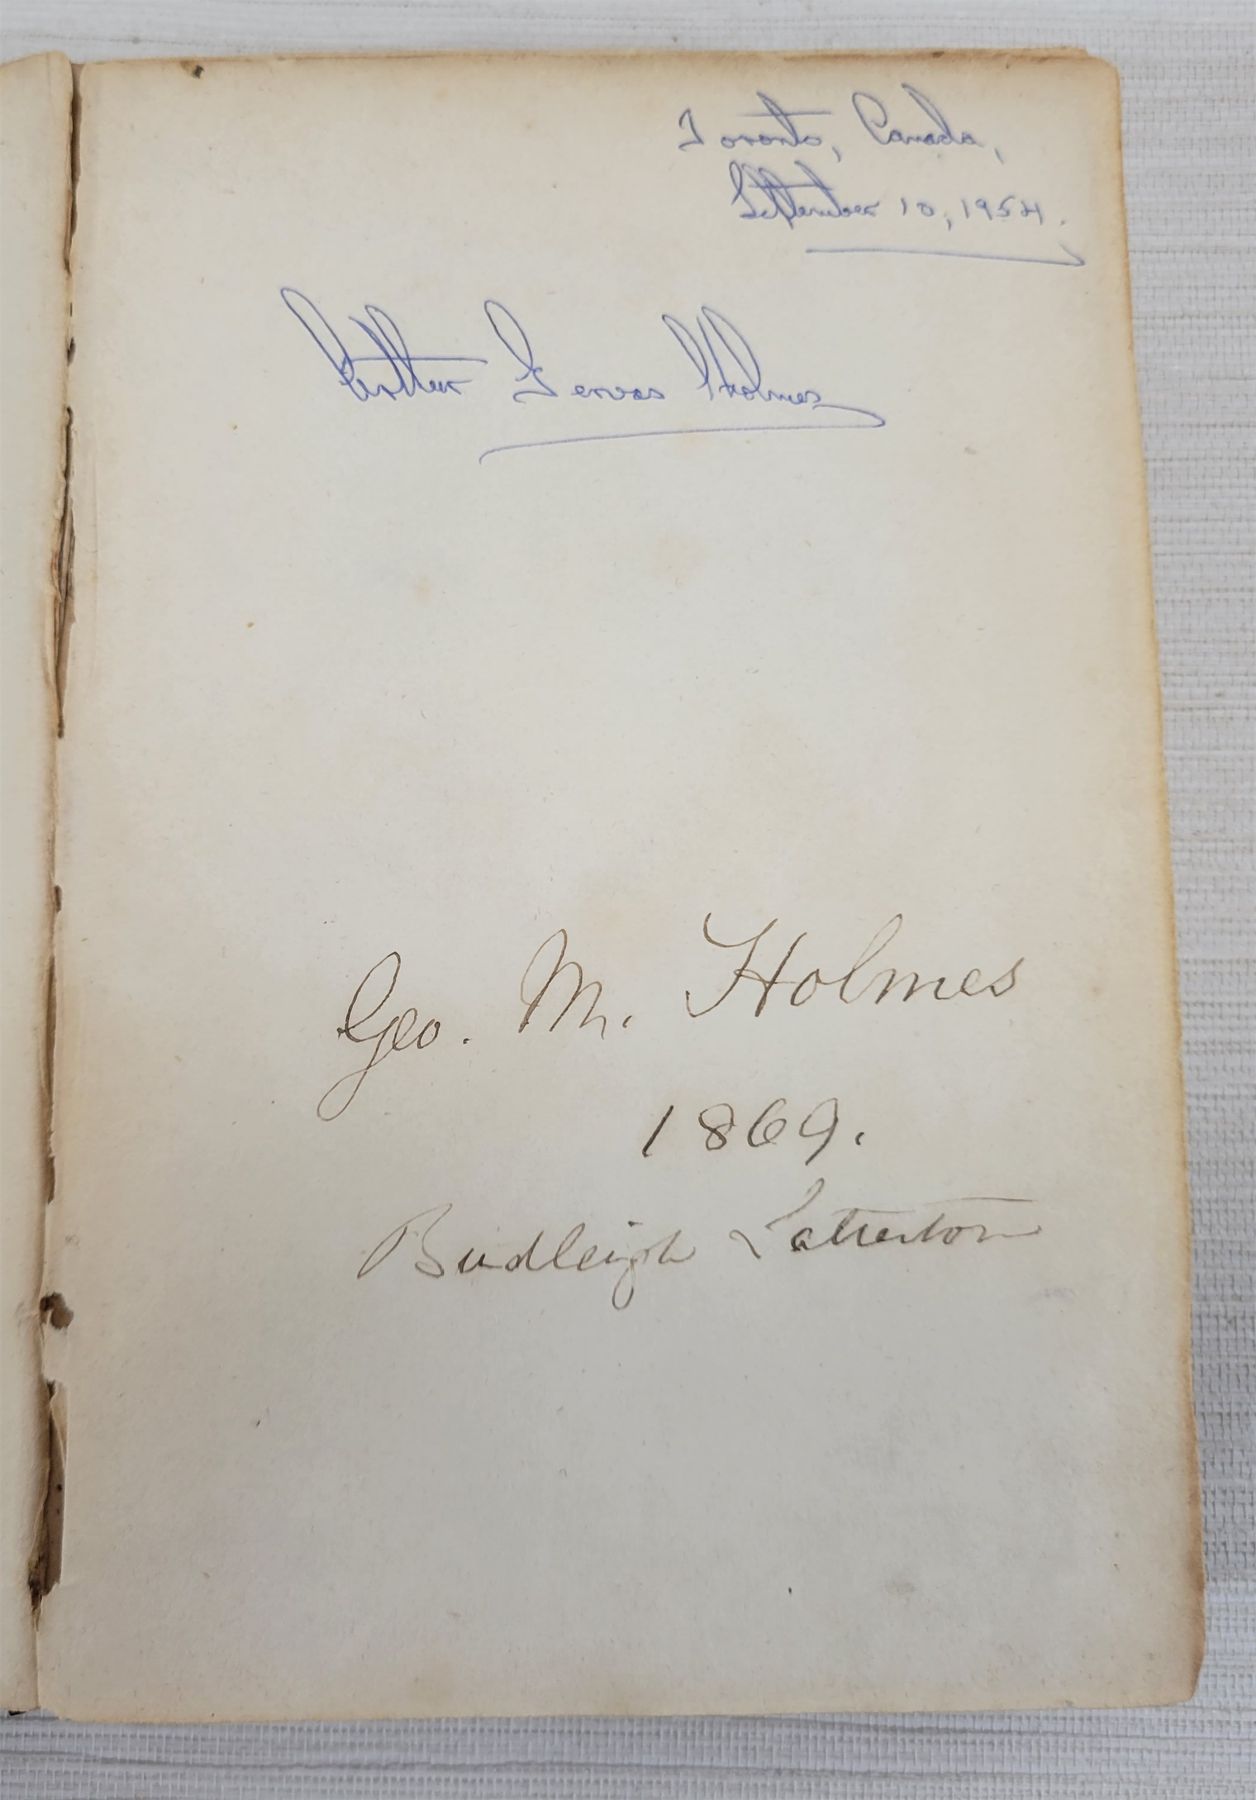 Toronto, Canada,
September 10, 1954.
Arthur Gervas Holmes
Geo. M. Holmes
1869.
Budleigh Salterton